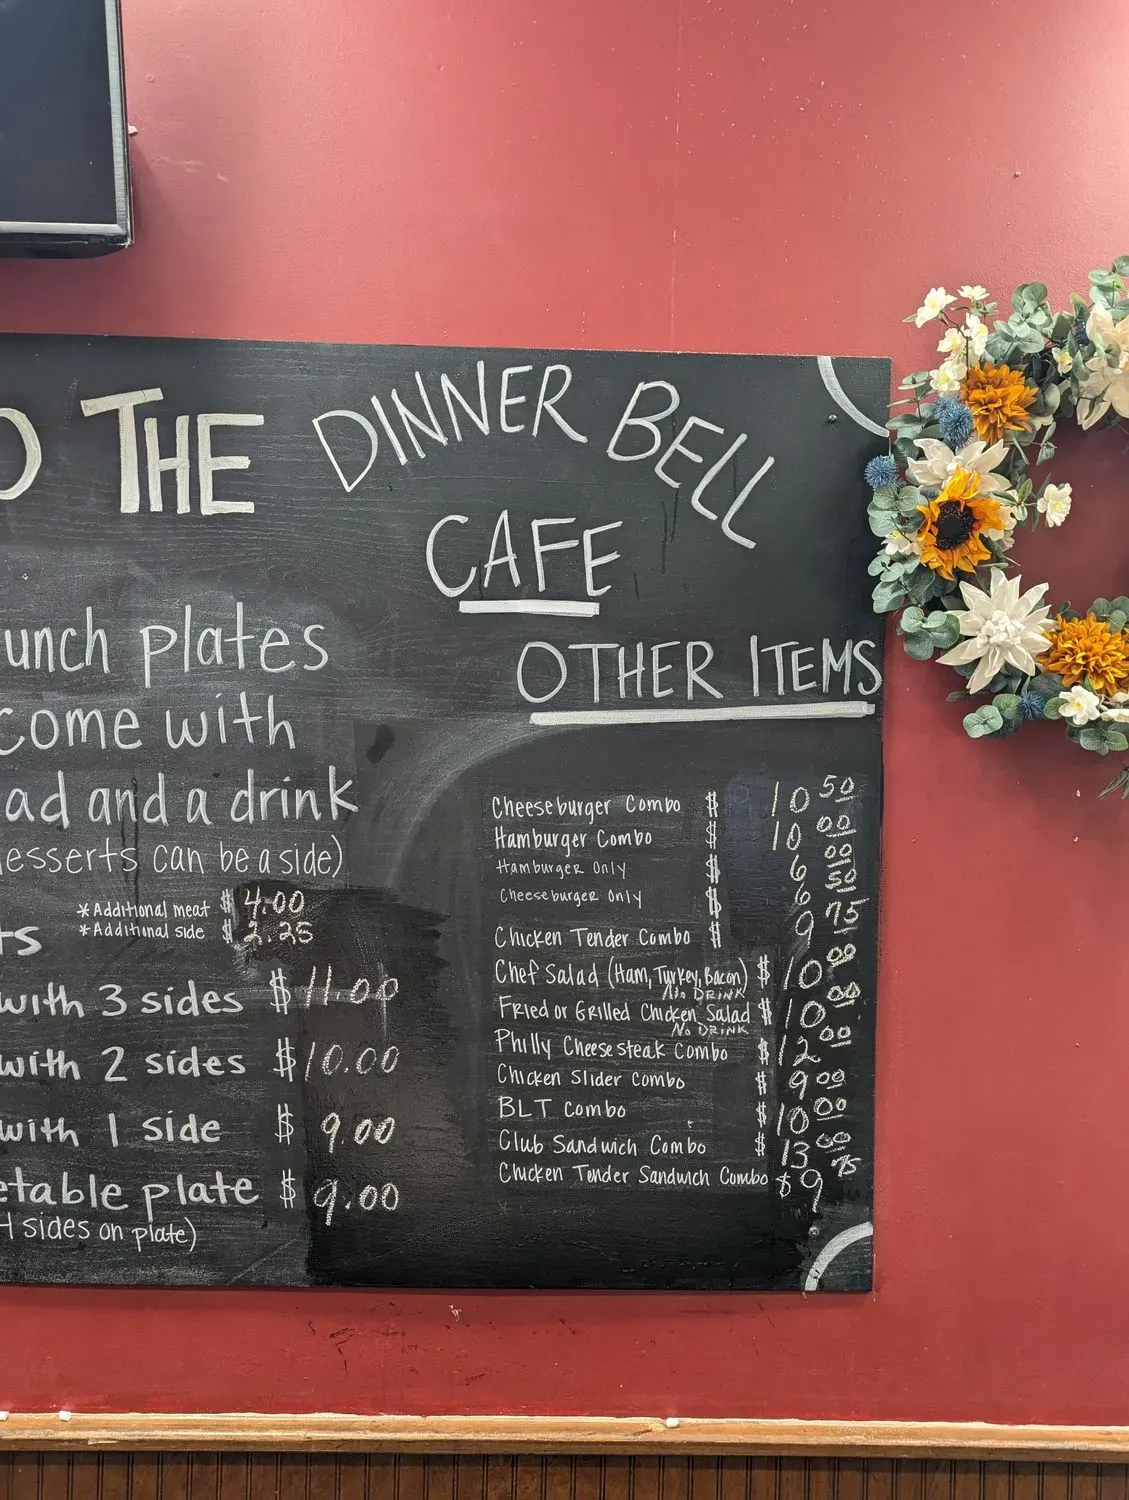 O THE DINNER BELL
CAFE
unch plates
come with
ad and a drink
esserts can be a side)
*Additional meat $ 4.00
*Additional side $ 2.25
ts
with 3 sides $ 11.00
with 2 sides $ 10.00
with 1 side $ 9.00
etable plate $ 9.00
4 sides on plate)
OTHER ITEMS
Cheeseburger Combo $ 10 50
Hamburger Combo $ 10 00
Hamburger Only $ 6 00
Cheeseburger Only $ 6 50
Chicken Tender Combo $ 9 75
Chef Salad (Ham, Turkey, Bacon) $ 10 00
No DRINK
Fried or Grilled Chicken Salad $ 10 00
No DRINK
Philly Cheesesteak Combo $ 12 00
Chicken Slider Combo $ 9 00
BLT Combo $ 10 00
Club Sandwich Combo $ 13 00
Chicken Tender Sandwich Combo $ 9 75